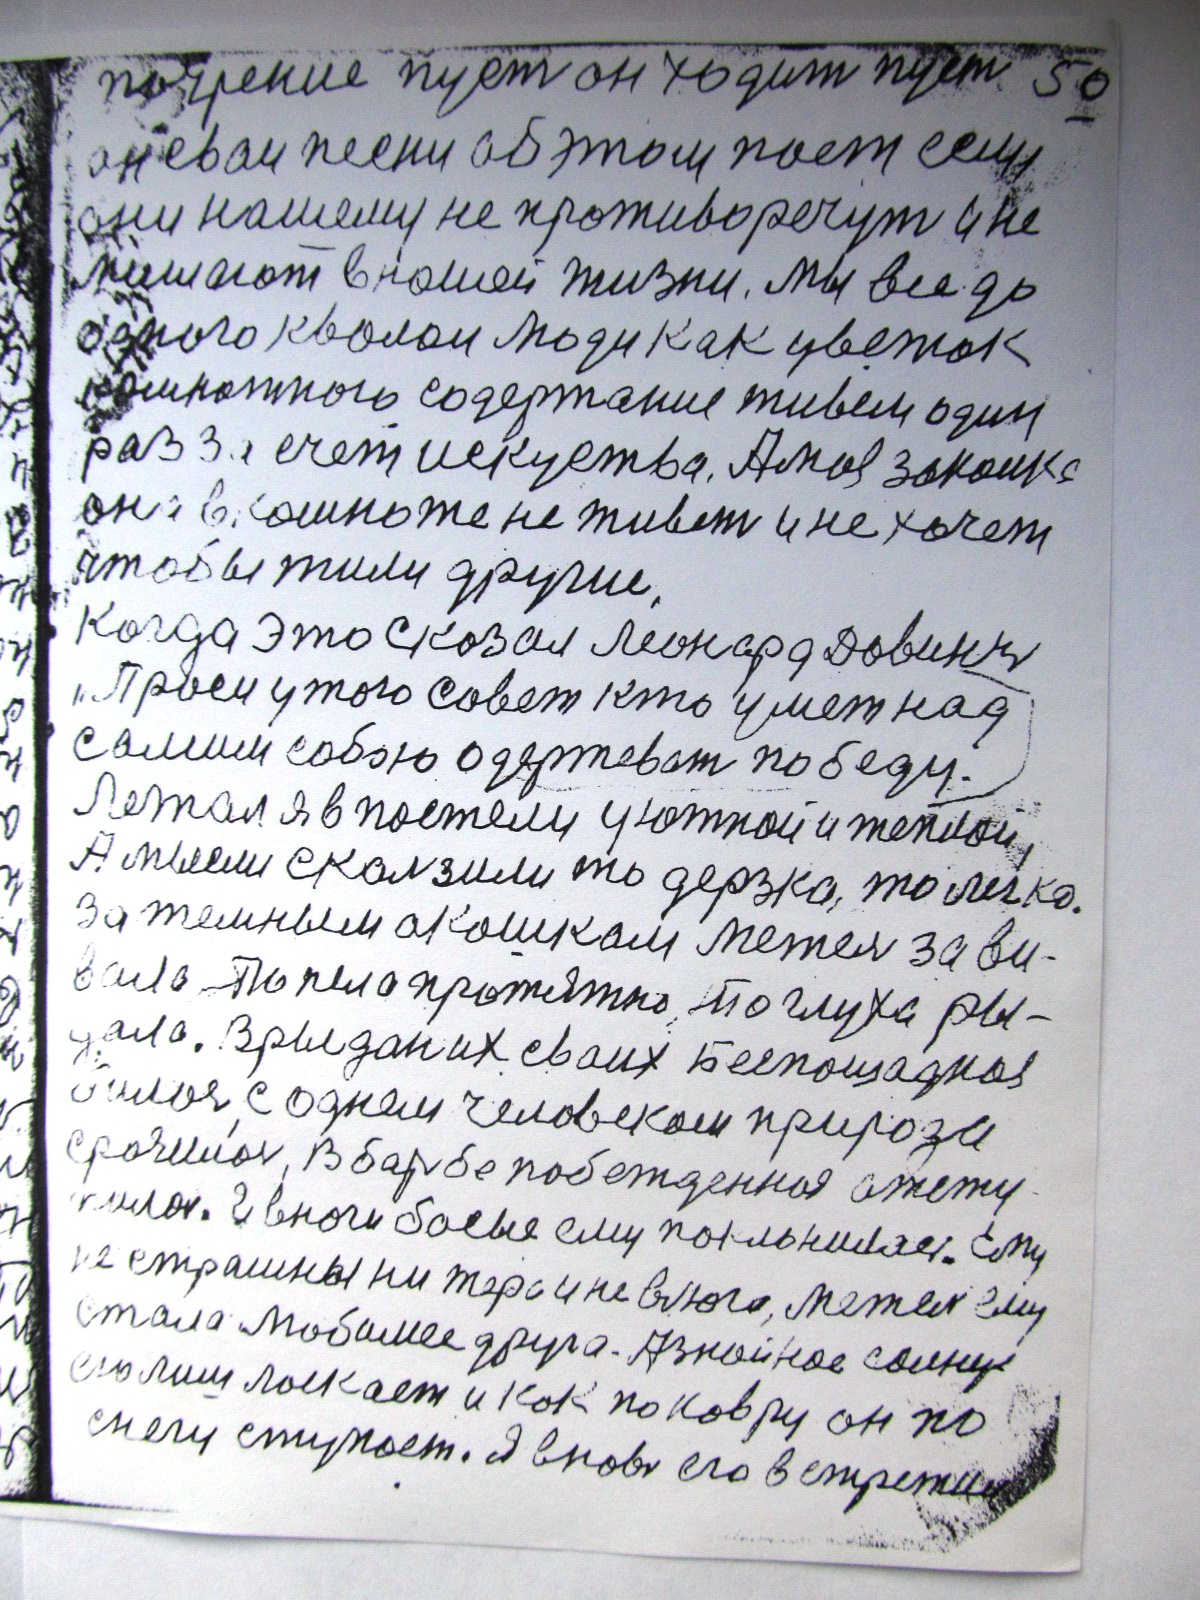 почрение пуст он ходит пуст 50
он сваи песни об этом поет если
они нашему не противоречут и не
мишают в нашей жизни. Мы все до
одного кволои люди как цветок
комнотного содержание живем один
раз за счет искуства. А моя закоика
она в комноже не живет и не хочет
чтобы жили другие.
Когда это сказал Леонард Давинчи
"Проси у того совет кто умет над
самим собою одержеват победу.
Лежал я в постели уютной и теплой,
А мысли скалзили то дерзка, то легка.
За темным окошкам метел зави-
вала То пела протяжно, то глуха ры-
дала. В рыданих своих Беспощадная
билоя, с однем человеком природа
срочилоя, В барбе побежденная
И в ноги босые ему поклонилас. Ему
не страшны ни жара и не вюга, метел ему
стала любимее друга. А знойное солнце
его лиш ласкает и как по ковру он по
снегу ступает. Я внов его встретил